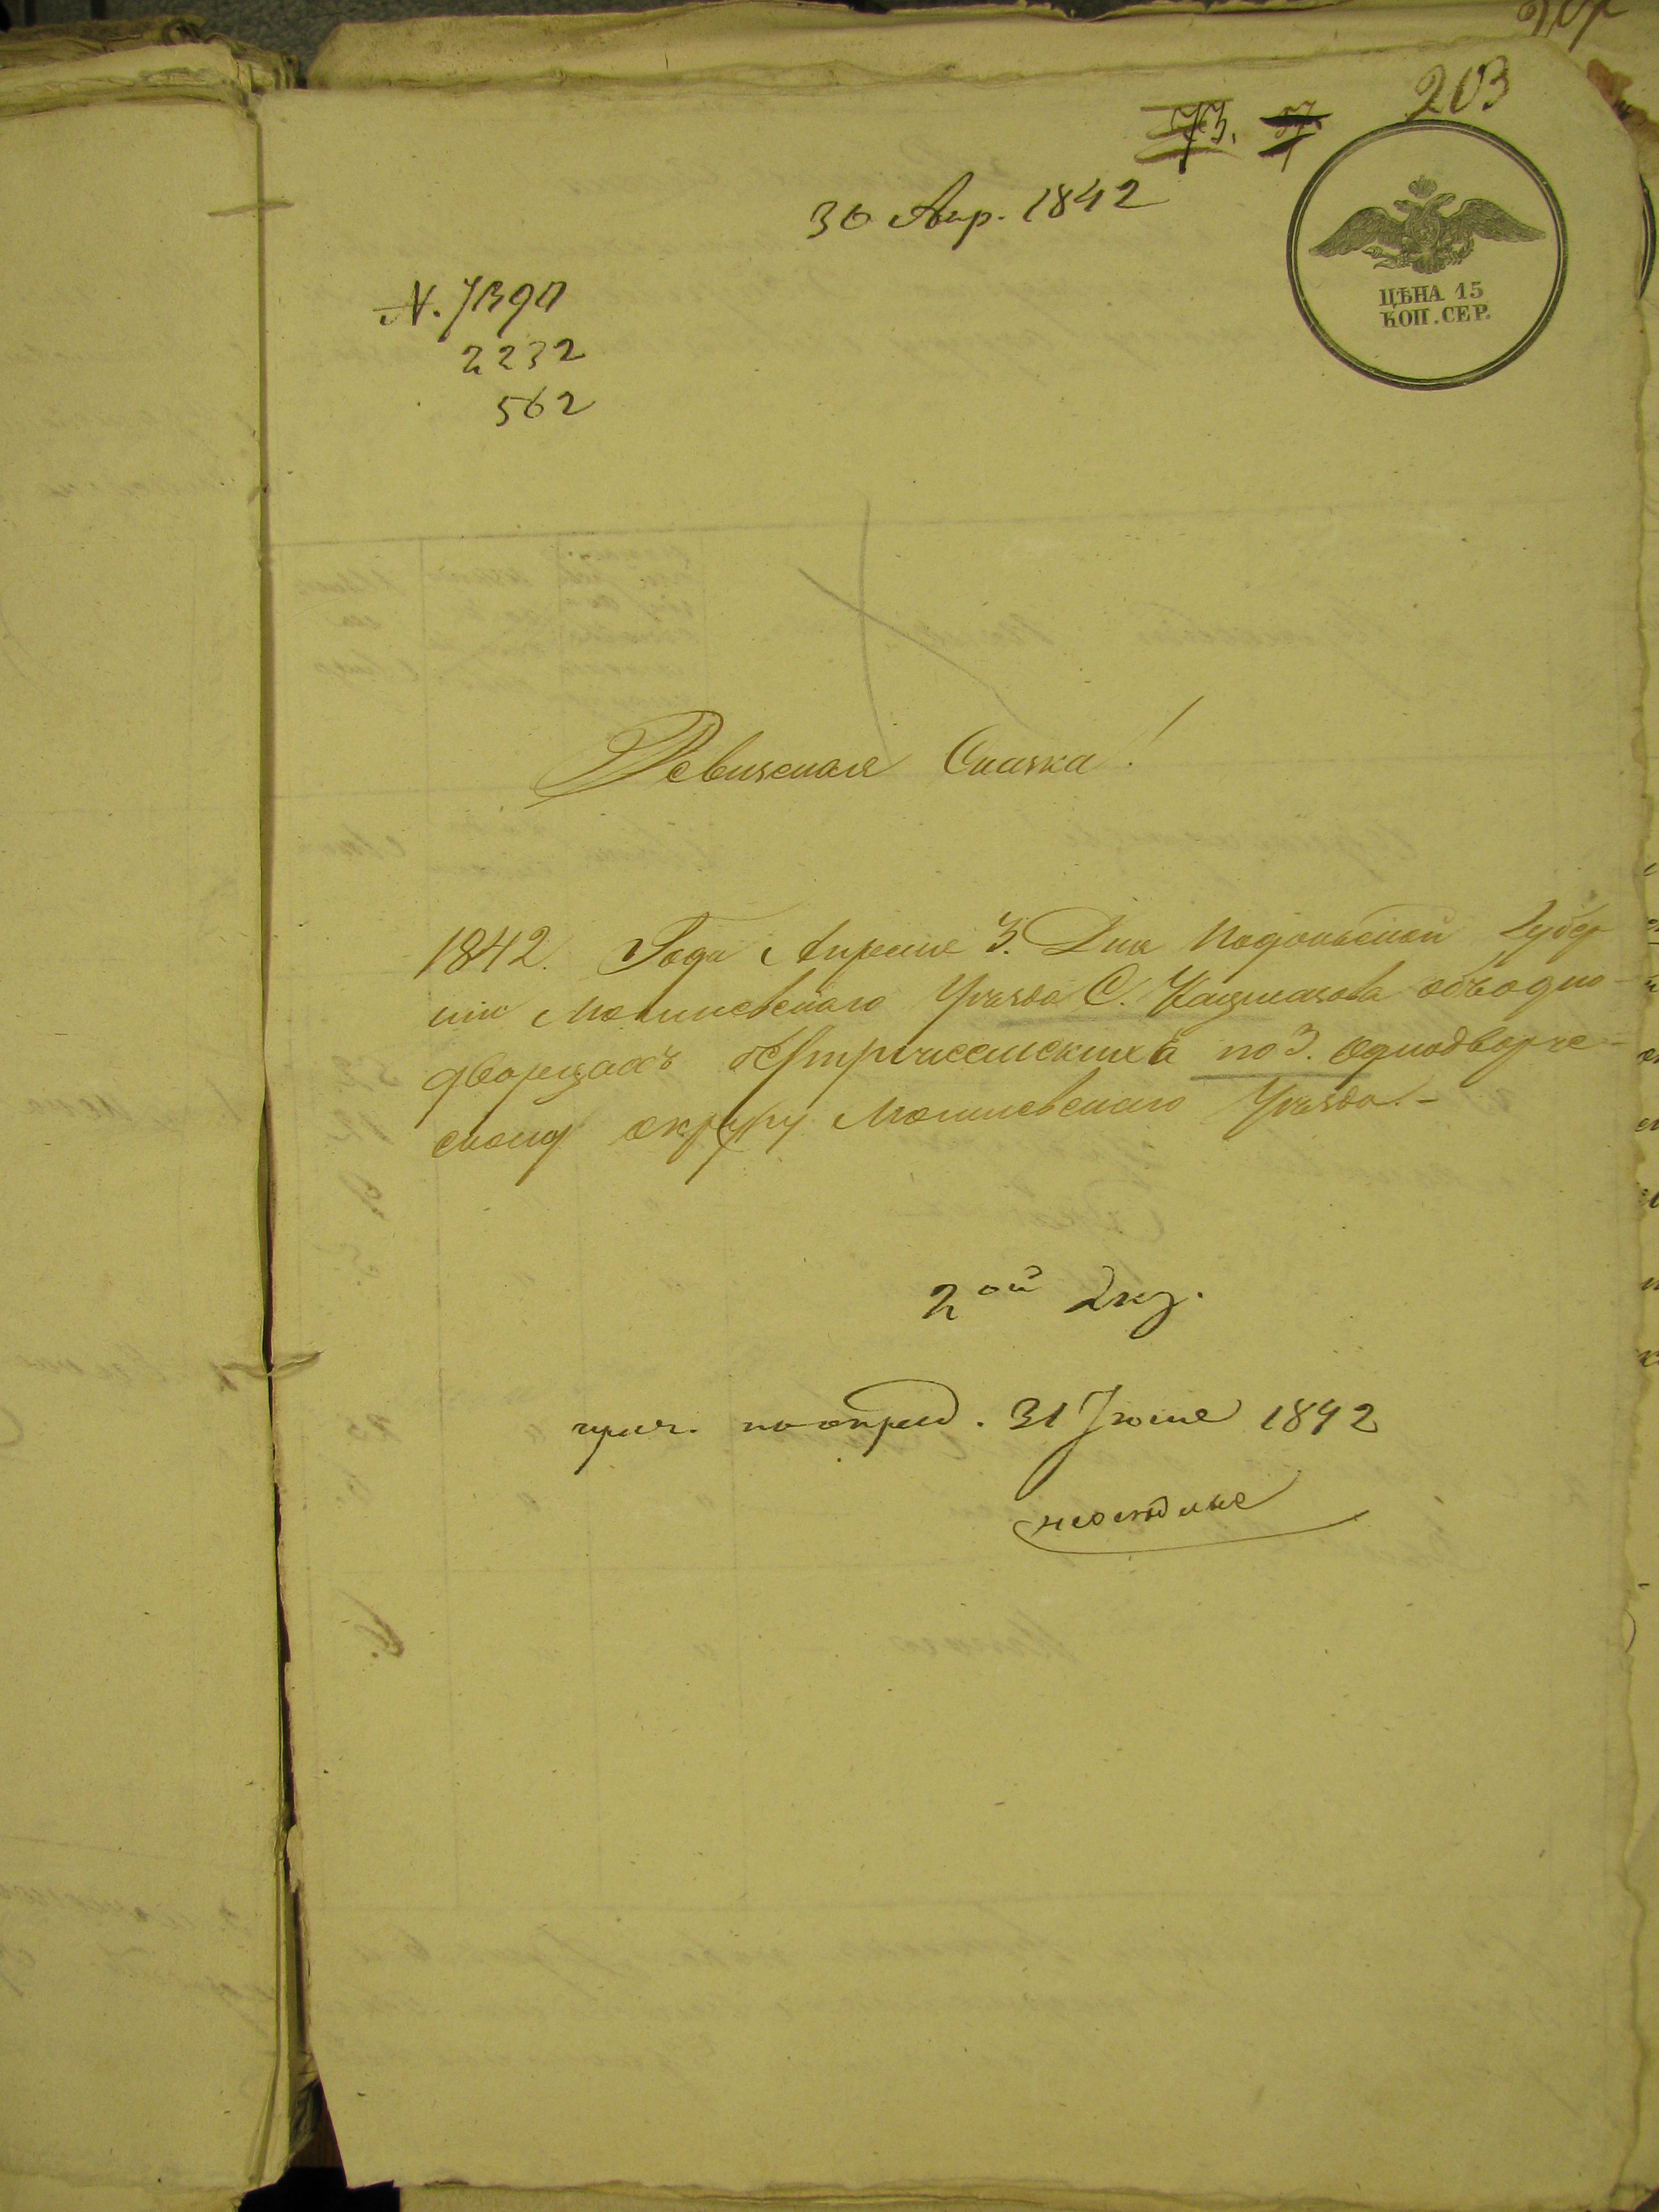 203
73.
30 Апр. 1842
ЦѢНА 15
КОП. СЕР.
N.
2232
562
Ревизская Сказка!
1842. Года Апреля 3. Дня Подольской Губер
нии Могилевскаго Уѣзда С. Кацмазова объ одно-
дворцахъ причисленныхъ по 3. Однодворче-
скому округу Могилевскаго Уѣзда.-
2ой Экз.
прич. по опред. 31 Іюля 1842